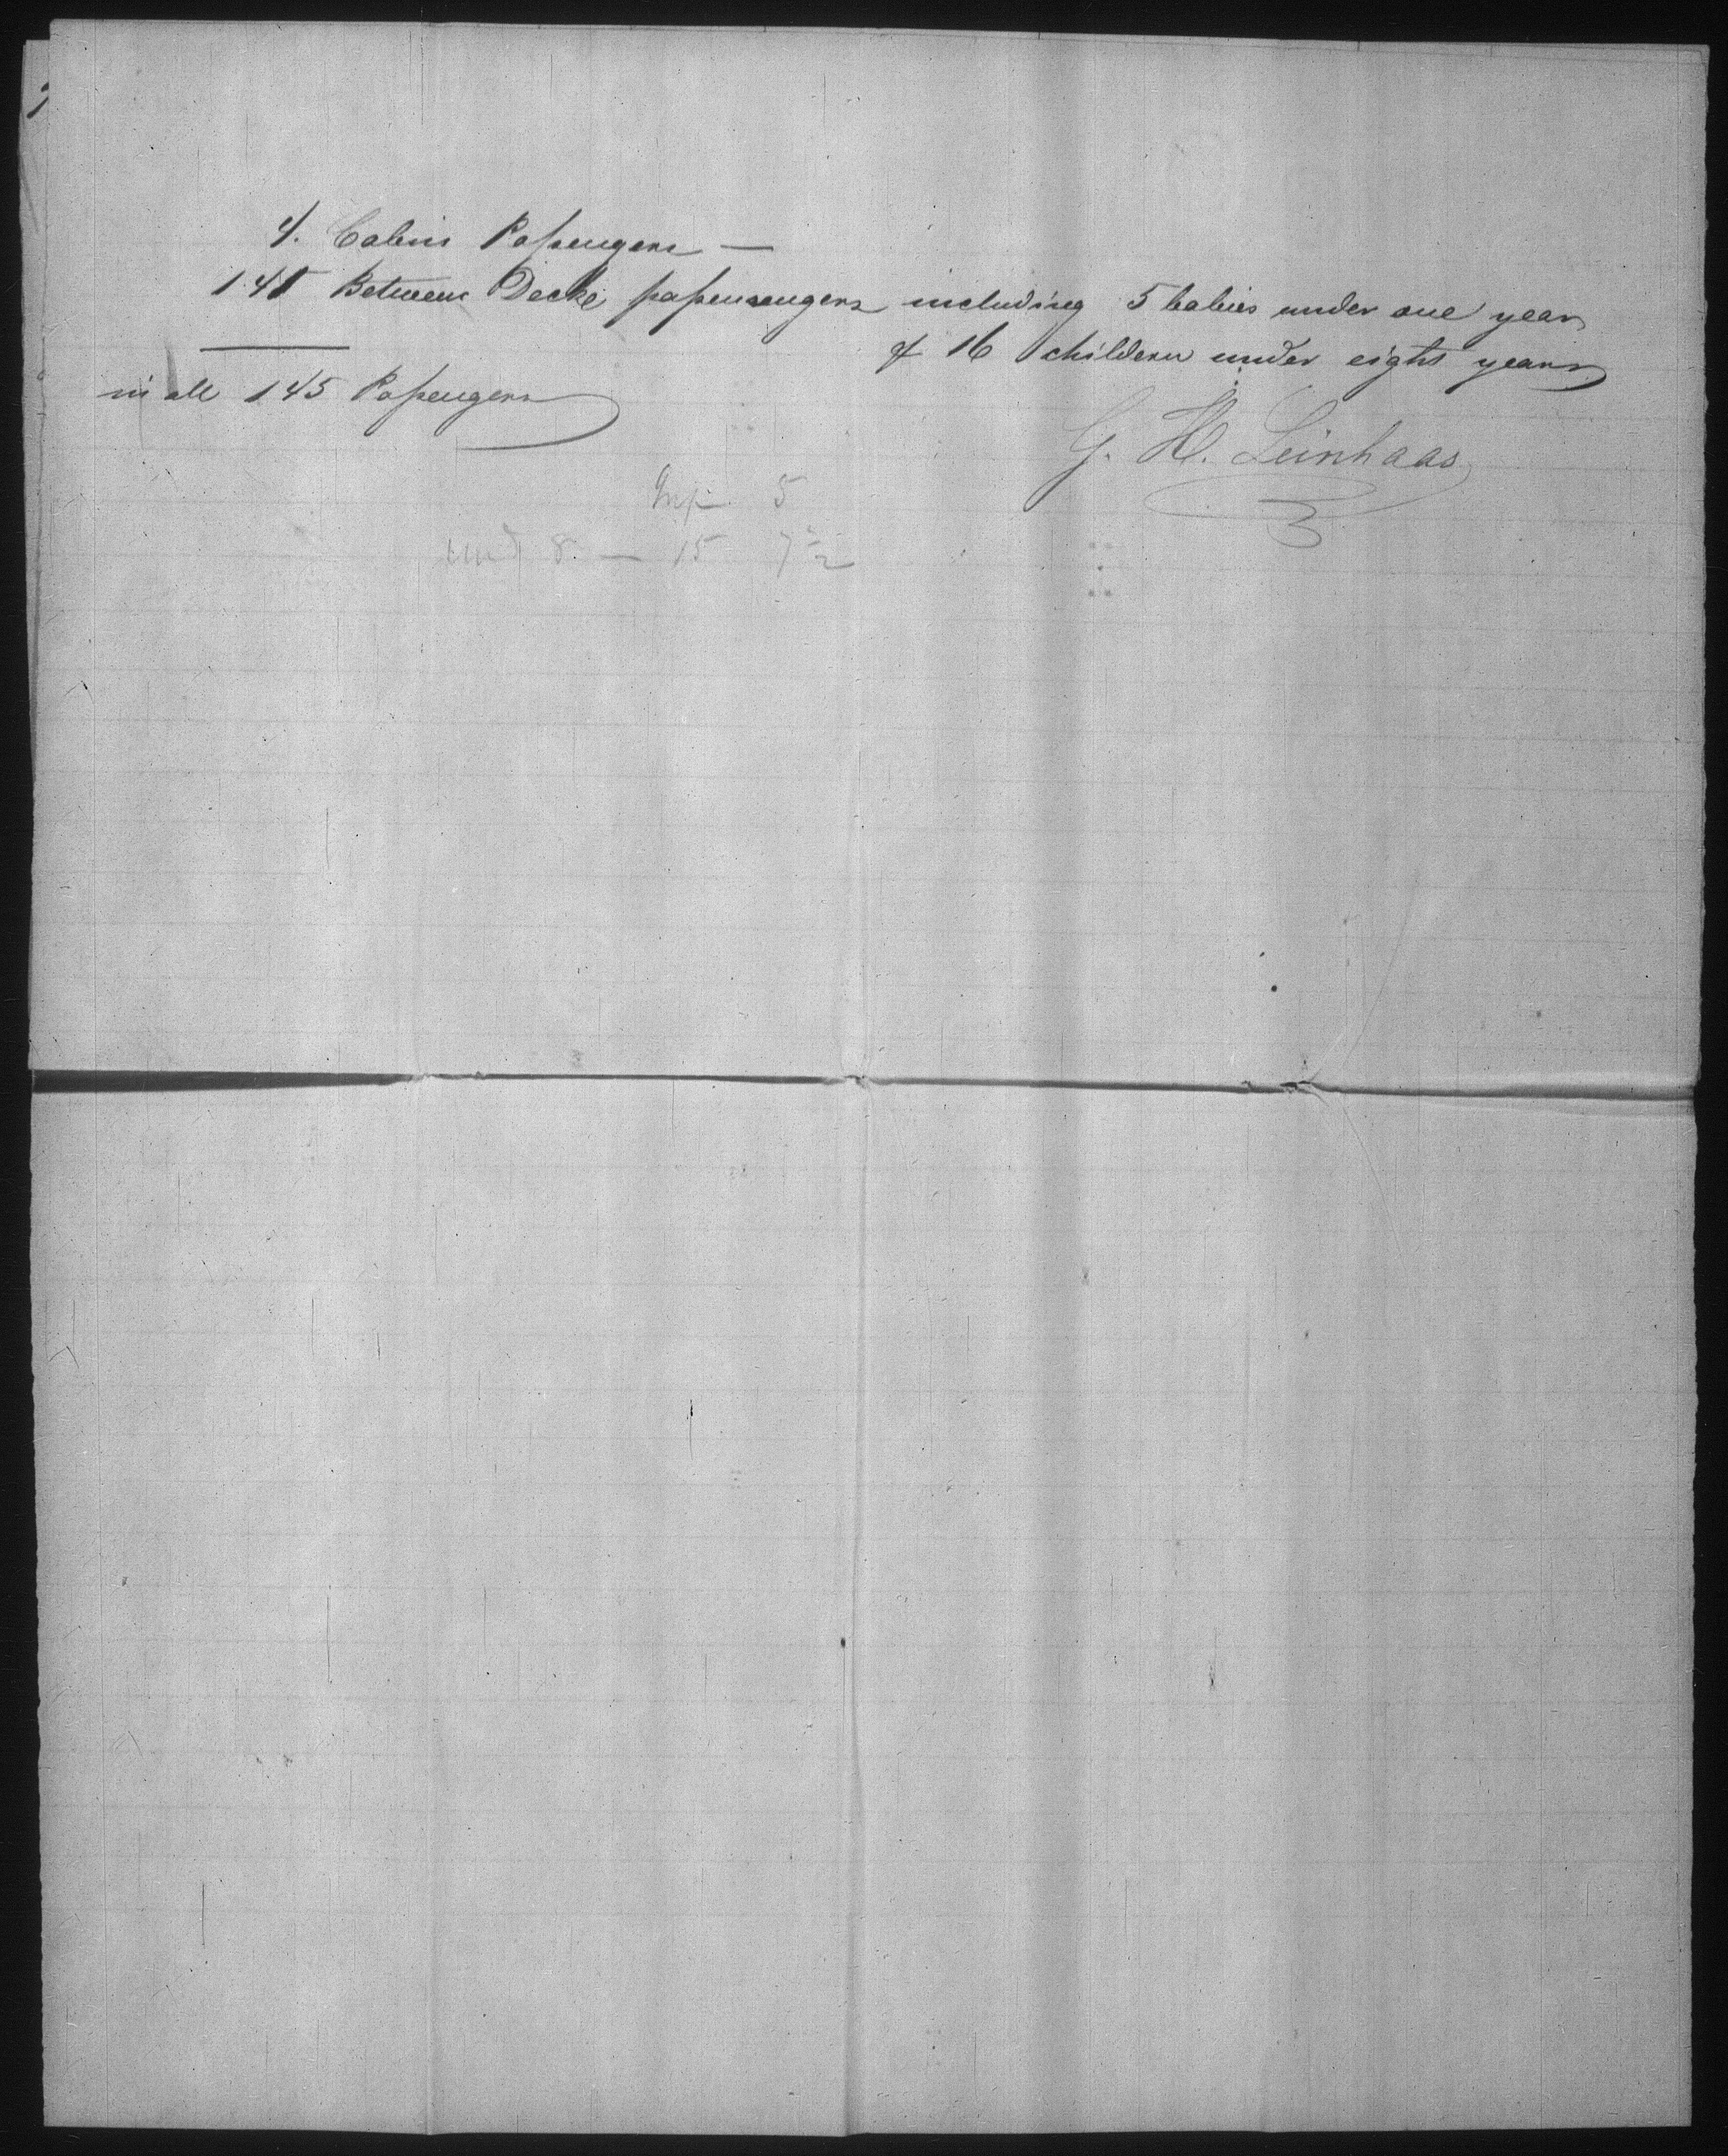 4. Cabin Passengers —
141 Between Decks passensengers including 5 babies under one year
& 16 children under eight years
in all 145 Passengers
G. H. Leinhaas
Inf 5
und 8 — 15 7 1/2